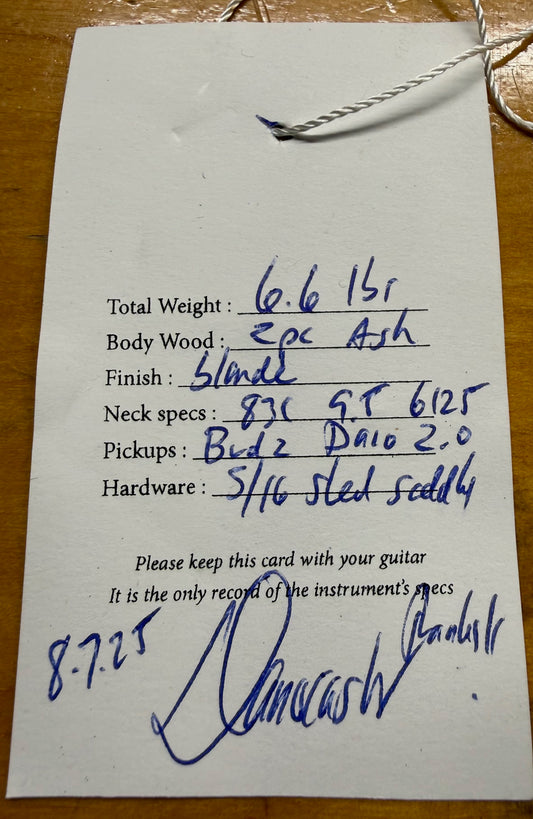 Total Weight : 6.6 lbs
Body Wood : 2pc Ash
Finish : blonde
Neck specs : 83C 9.5 6125
Pickups : 2.0
Hardware : 5/16 steel saddles
Please keep this card with your guitar
It is the only record of the instrument's specs
8.7.25
Danocaster